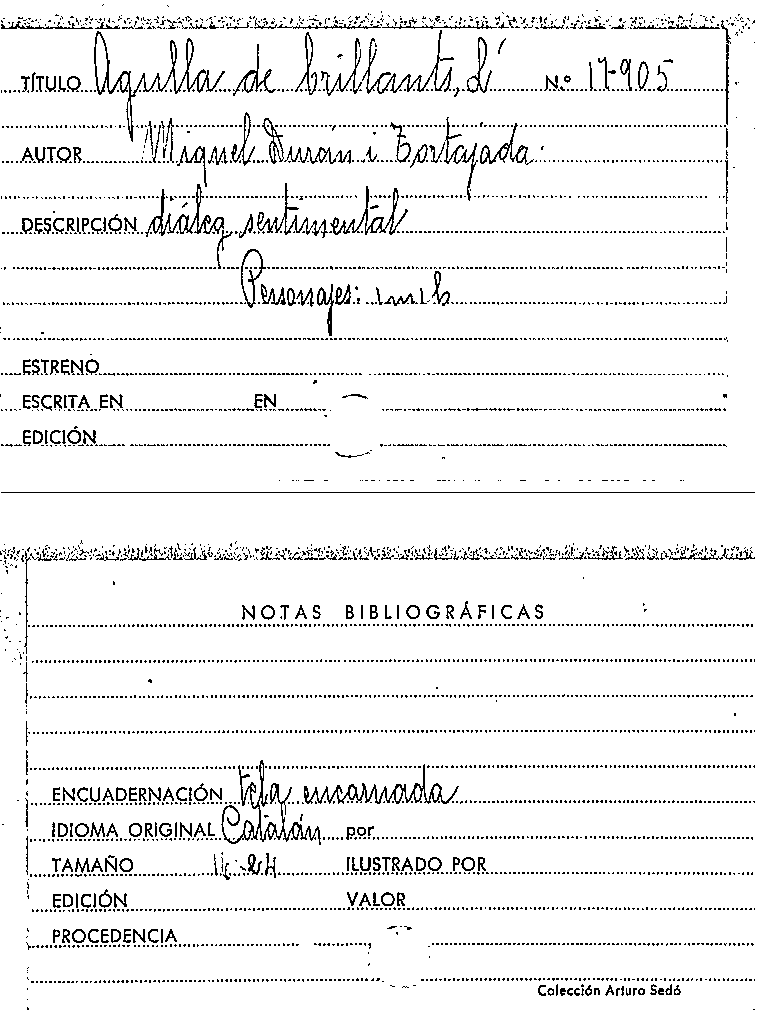 TÍTULO Agulla de brillants, L' N.º 17-905
AUTOR Miquel Durán i Tortajada.
DESCRIPCIÓN diáleg sentimental
Personajes: 1 m 1 h
ESTRENO
ESCRITA EN EN
EDICIÓN
NOTAS BIBLIOGRÁFICAS
ENCUADERNACIÓN tela encarnada
IDIOMA ORIGINAL Catalán por
TAMAÑO ILUSTRADO POR
EDICIÓN VALOR
PROCEDENCIA
Colección Arturo Sedó